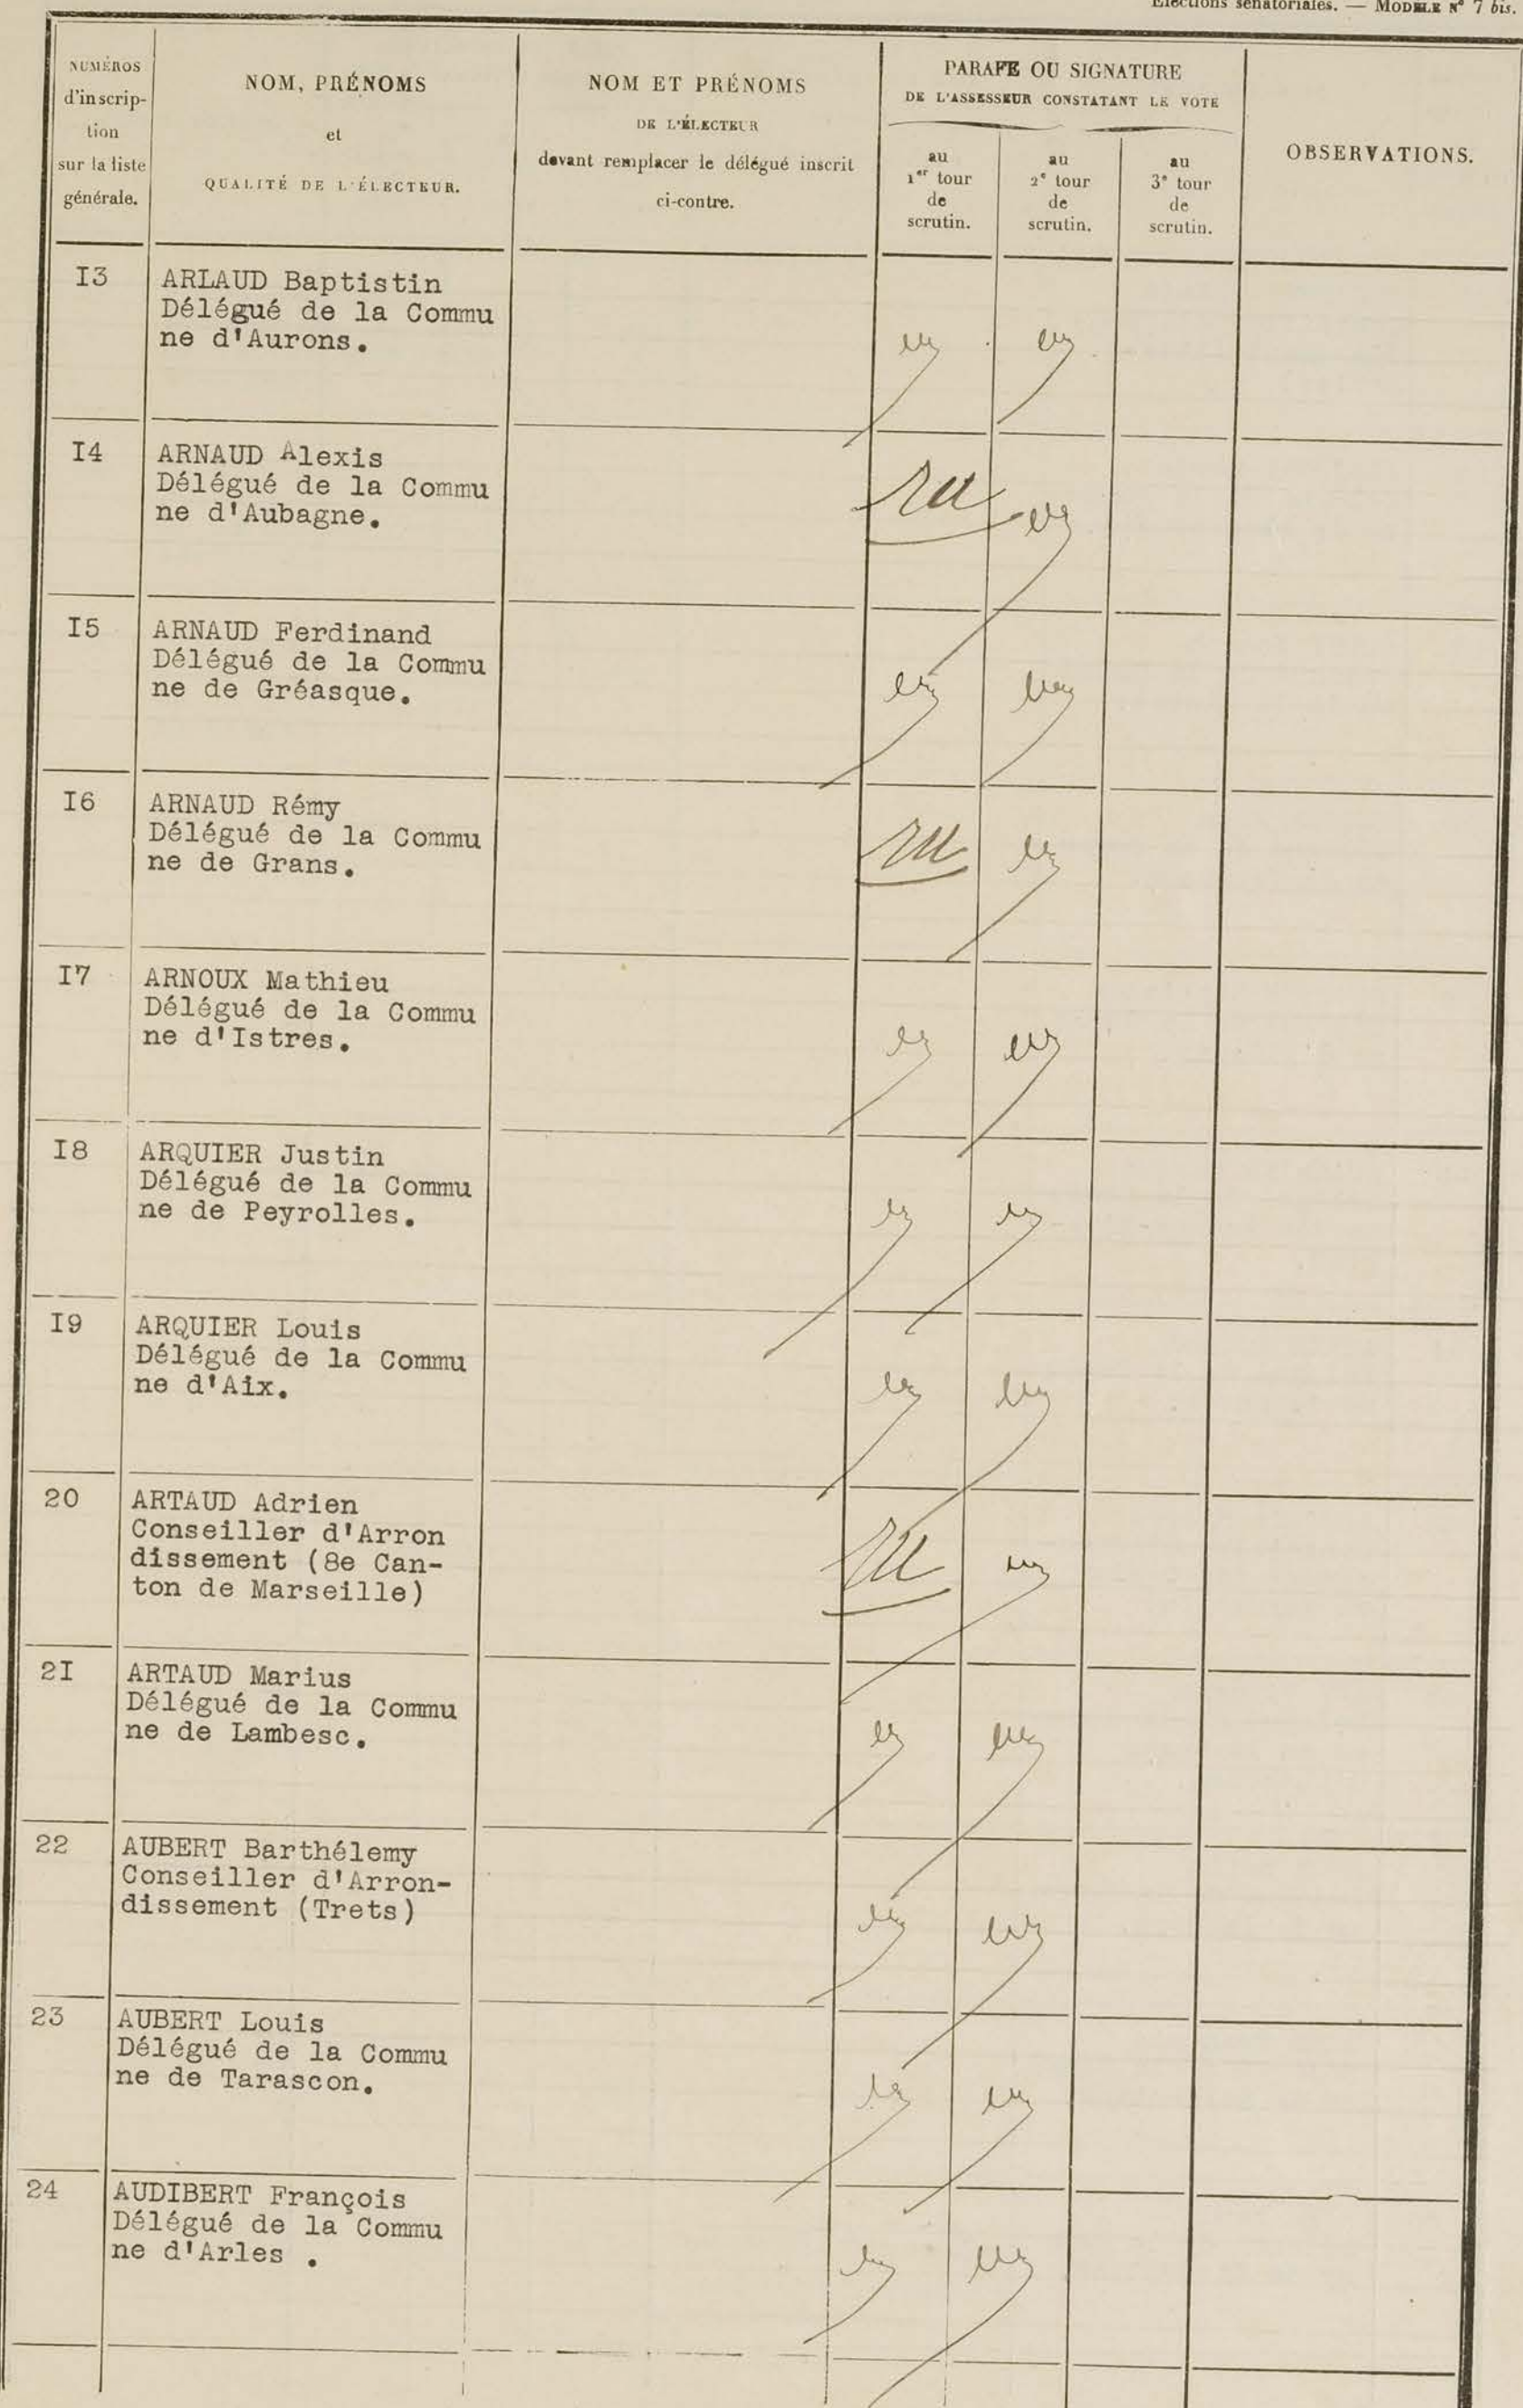 Elections sénatoriales. — MODÈLE N° 7 bis.
NUMÉROS
d'inscrip-
tion
sur la liste
générale.
NOM, PRÉNOMS
et
QUALITÉ DE L'ÉLECTEUR.
NOM ET PRÉNOMS
DE L'ÉLECTEUR
devant remplacer le délégué inscrit
ci-contre.
PARAFE OU SIGNATURE
DE L'ASSESSEUR CONSTATANT LE VOTE
au
1er tour
de
scrutin.
au
2e tour
de
scrutin.
au
3e tour
de
scrutin.
OBSERVATIONS.
I3
ARLAUD Baptistin
Délégué de la Commu
ne d'Aurons.
I4
ARNAUD Alexis
Délégué de la Commu
ne d'Aubagne.
I5
ARNAUD Ferdinand
Délégué de la Commu
ne de Gréasque.
I6
ARNAUD Rémy
Délégué de la Commu
ne de Grans.
I7
ARNOUX Mathieu
Délégué de la Commu
ne d'Istres.
I8
ARQUIER Justin
Délégué de la Commu
ne de Peyrolles.
I9
ARQUIER Louis
Délégué de la Commu
ne d'Aix.
20
ARTAUD Adrien
Conseiller d'Arron
dissement (8e Can-
ton de Marseille)
2I
ARTAUD Marius
Délégué de la Commu
ne de Lambesc.
22
AUBERT Barthélemy
Conseiller d'Arron-
dissement (Trets)
23
AUBERT Louis
Délégué de la Commu
ne de Tarascon.
24
AUDIBERT François
Délégué de la Commu
ne d'Arles .